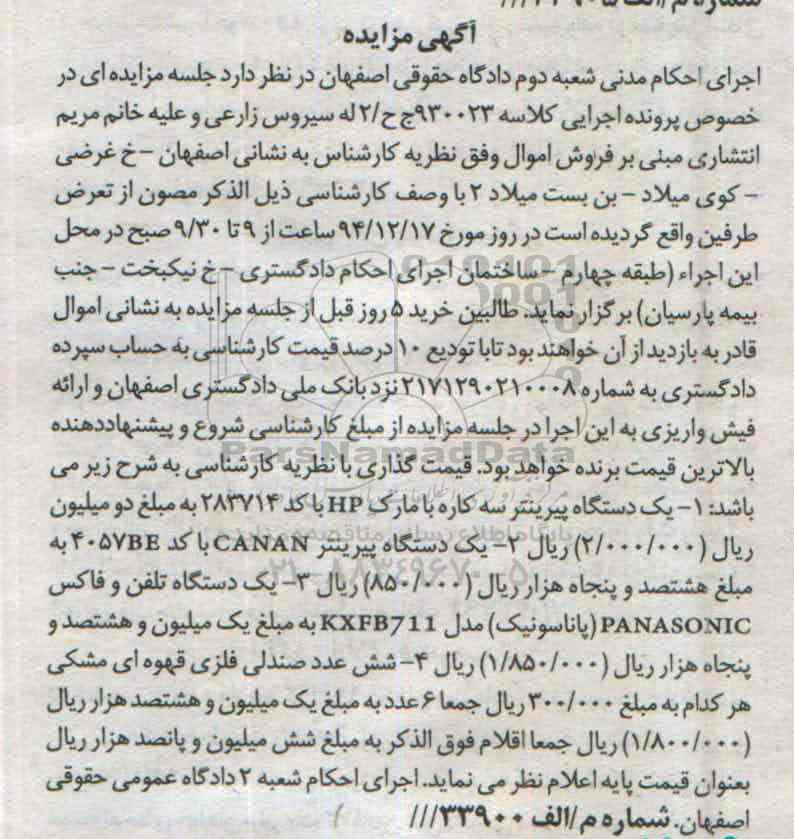 آگهی مزایده
اجرای احکام مدنی شعبه دوم دادگاه حقوقی اصفهان در نظر دارد جلسه مزایده ای در
خصوص پرونده اجرایی کلاسه ۹۳۰۰۲۳ج ح/۲ له سیروس زارعی و علیه خانم مریم
انتشاری مبنی بر فروش اموال وفق نظریه کارشناس به نشانی اصفهان – خ غرضی
– کوی میلاد – بن بست میلاد ۲ با وصف کارشناسی ذیل الذکر مصون از تعرض
طرفین واقع گردیده است در روز مورخ ۹۴/۱۲/۱۷ ساعت از ۹ تا ۹/۳۰ صبح در محل
این اجراء (طبقه چهارم – ساختمان اجرای احکام دادگستری – خ نیکبخت – جنب
بیمه پارسیان) برگزار نماید. طالبین خرید ۵ روز قبل از جلسه مزایده به نشانی اموال
قادر به بازدید از آن خواهند بود تا با تودیع ۱۰ درصد قیمت کارشناسی به حساب سپرده
دادگستری به شماره ۲۱۷۱۲۹۰۲۱۰۰۰۸ نزد بانک ملی دادگستری اصفهان و ارائه
فیش واریزی به این اجرا در جلسه مزایده از مبلغ کارشناسی شروع و پیشنهاددهنده
بالاترین قیمت برنده خواهد بود. قیمت گذاری با نظریه کارشناسی به شرح زیر می
باشد: ۱- یک دستگاه پیرینتر سه کاره با مارک HP با کد ۲۸۳۷۱۴ به مبلغ دو میلیون
ریال (۲/۰۰۰/۰۰۰) ریال ۲- یک دستگاه پیرینتر CANAN با کد ۴۰۵۷BE به
مبلغ هشتصد و پنجاه هزار ریال (۸۵۰/۰۰۰) ریال ۳- یک دستگاه تلفن و فاکس
PANASONIC (پاناسونیک) مدل KXFB711 به مبلغ یک میلیون و هشتصد و
پنجاه هزار ریال (۱/۸۵۰/۰۰۰) ریال ۴- شش عدد صندلی فلزی قهوه ای مشکی
هر کدام به مبلغ ۳۰۰/۰۰۰ ریال جمعا ۶ عدد به مبلغ یک میلیون و هشتصد هزار ریال
(۱/۸۰۰/۰۰۰) ریال جمعا اقلام فوق الذکر به مبلغ شش میلیون و پانصد هزار ریال
بعنوان قیمت پایه اعلام نظر می نماید. اجرای احکام شعبه ۲ دادگاه عمومی حقوقی
اصفهان. شماره م/الف ۳۳۹۰۰///
ParsNamadData
۰۲۱-۸۸۳۴۹۶۷۰-۵